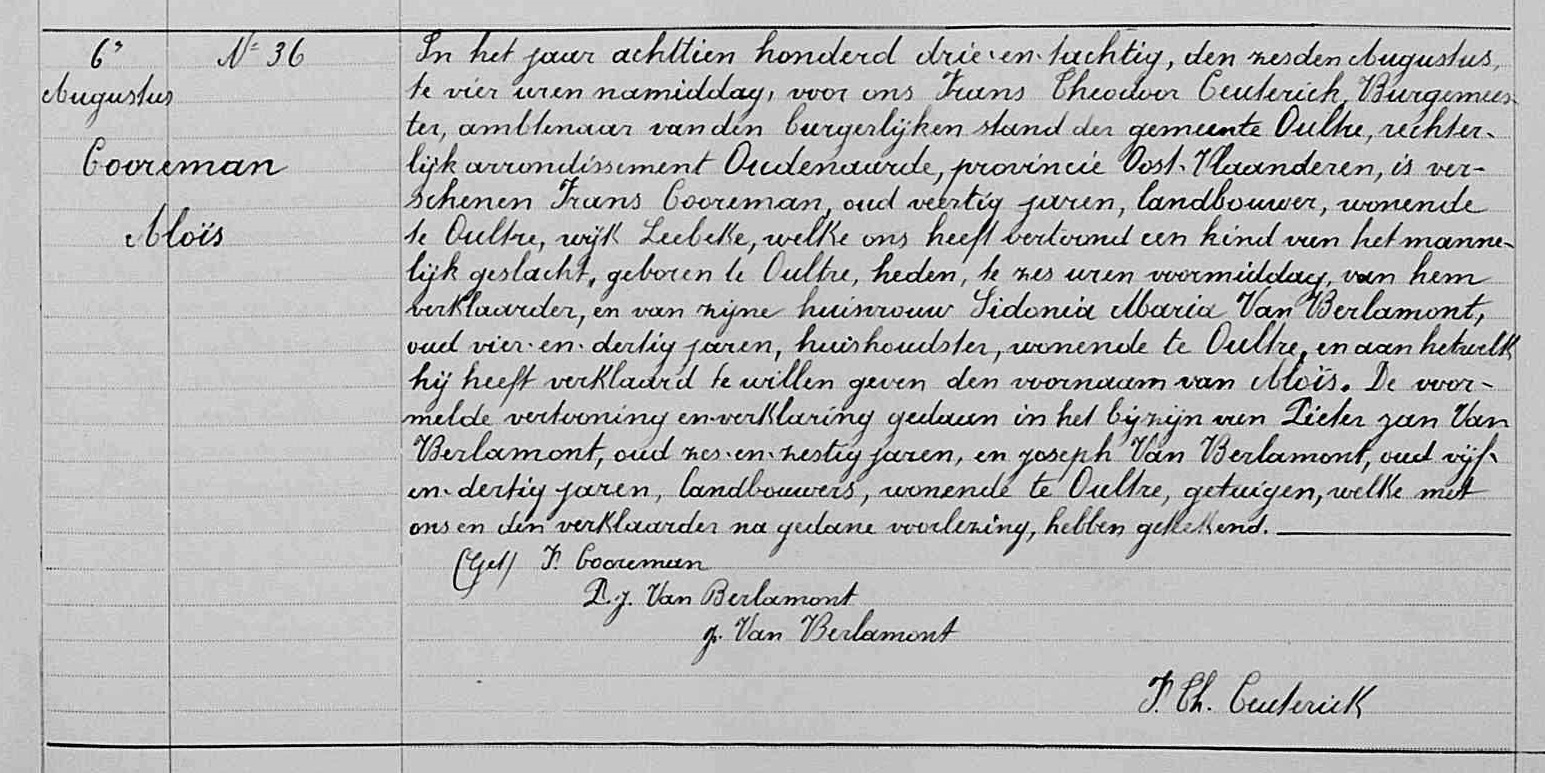 6n Augustus
N= 36
Cooreman
Aloïs
In het jaar achttien honderd drie-en-tachtig, den zesden Augustus,
te vier uren namiddag, voor ons Frans Theodoor Ceuterick, Burgemees-
ter, ambtenaar van den burgerlijken stand der gemeente Oultre, rechter-
lijk arrondissement Oudenaarde, provincie Oost-Vlaanderen, is ver-
schenen Frans Cooreman, oud veertig jaren, landbouwer, wonende
te Oultre, wijk Leebeke, welke ons heeft vertoond een kind van het manne-
lijk geslacht, geboren te Oultre, heden, te zes uren voormiddag, van hem
verklaarder, en van zijne huisvrouw Sidonia Maria Van Berlamont,
oud vier-en-dertig jaren, huishoudster, wonende te Oultre, en aan hetwelk
hij heeft verklaard te willen geven den voornaam van Aloïs. De voor-
melde vertooning en verklaring gedaan in het bijzijn van Pieter Jan Van
Berlamont, oud zes-en-zestig jaren, en Joseph Van Berlamont, oud vijf-
en-dertig jaren, landbouwers, wonende te Oultre, getuigen, welke met
ons en den verklaarder na gedane voorlezing, hebben geteekend.
(Get) F. Cooreman
P.J. Van Berlamont
J. Van Berlamont
F. Th. Ceuterick